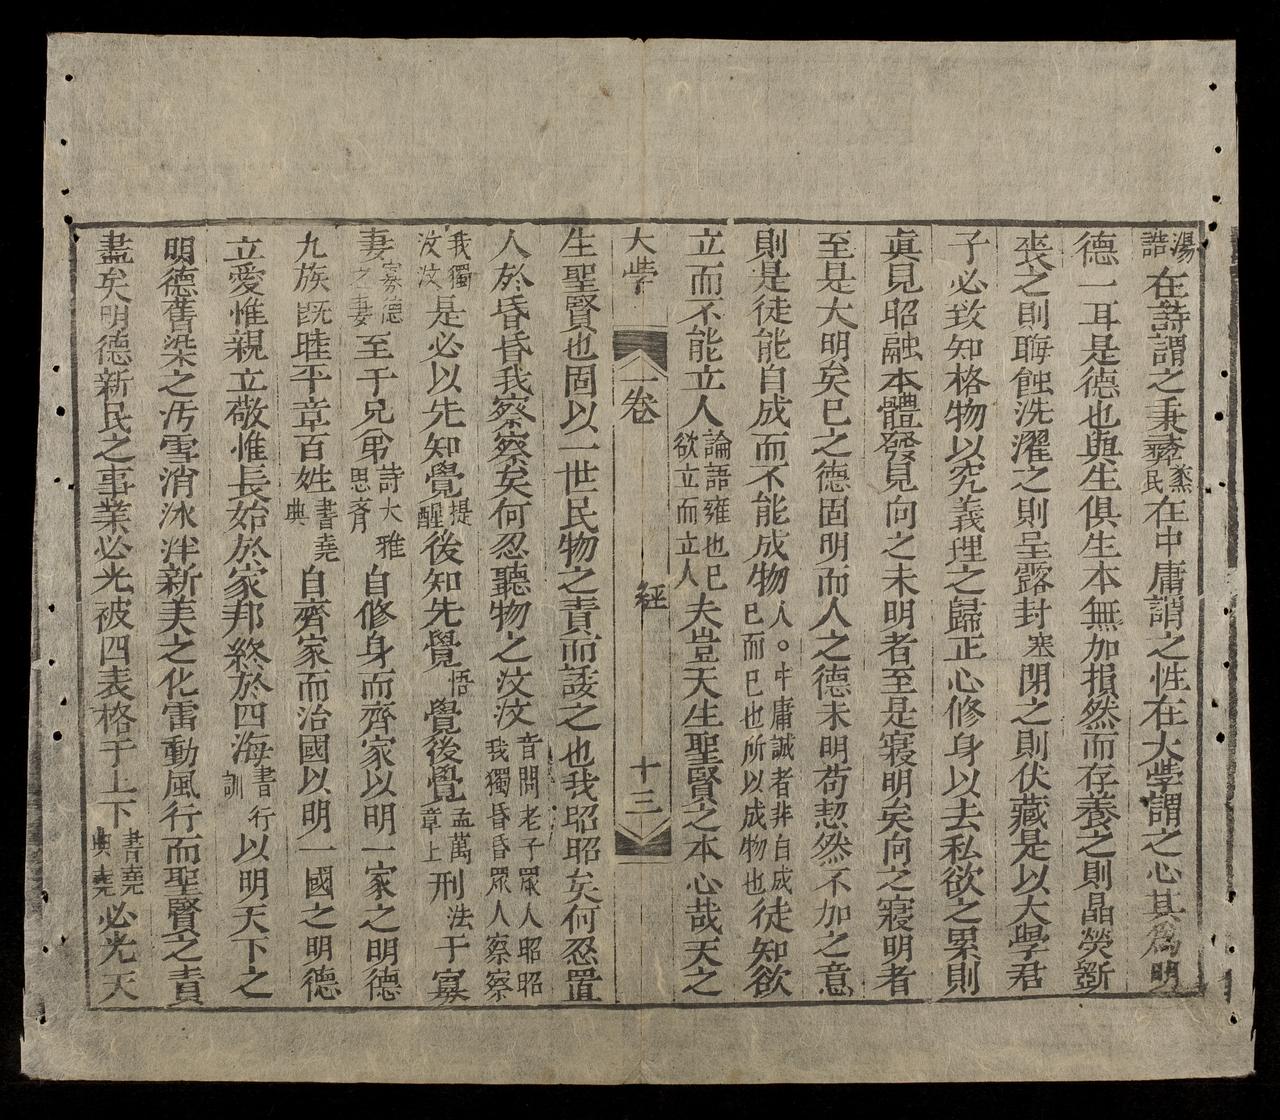 湯誥在詩謂之秉彝烝民在中庸謂之性在大學謂之心其為明
德一耳是德也與生俱生本無加損然而存養之則晶熒斵
喪之則晦蝕洗濯之則呈露封塞閉之則伏藏是以大學君
子必致知格物以究義理之歸正心修身以去私欲之累則
眞見昭融本體發見向之未明者至是寖明矣向之寖明者
至是大明矣已之德固明而人之德未明苟恝然不加之意
則是徒能自成而不能成物人。中庸誠者非自成已而已也所以成物也徒知欲
立而不能立人論語雍也已欲立而立人夫豈天生聖賢之本心哉天之
大學 一卷 經 十三
生聖賢也固以一世民物之責而諉之也我昭昭矣何忍置
人於昏昏我察察矣何忍聽物之汶汶音問老子眾人昭昭我獨昏昏眾人察察
我獨汶汶是必以先知覺提醒後知先覺悟覺後覺孟萬章上刑法于寡
妻寡德之妻至于兄弟詩大雅思齊自修身而齊家以明一家之明德
九族旣睦平章百姓書堯典自齊家而治國以明一國之明德
立愛惟親立敬惟長始於家邦終於四海書訓行以明天下之
明德舊染之汚雪消冰泮新美之化雷動風行而聖賢之責
盡矣明德新民之事業必光被四表格于上下書堯典堯必光天